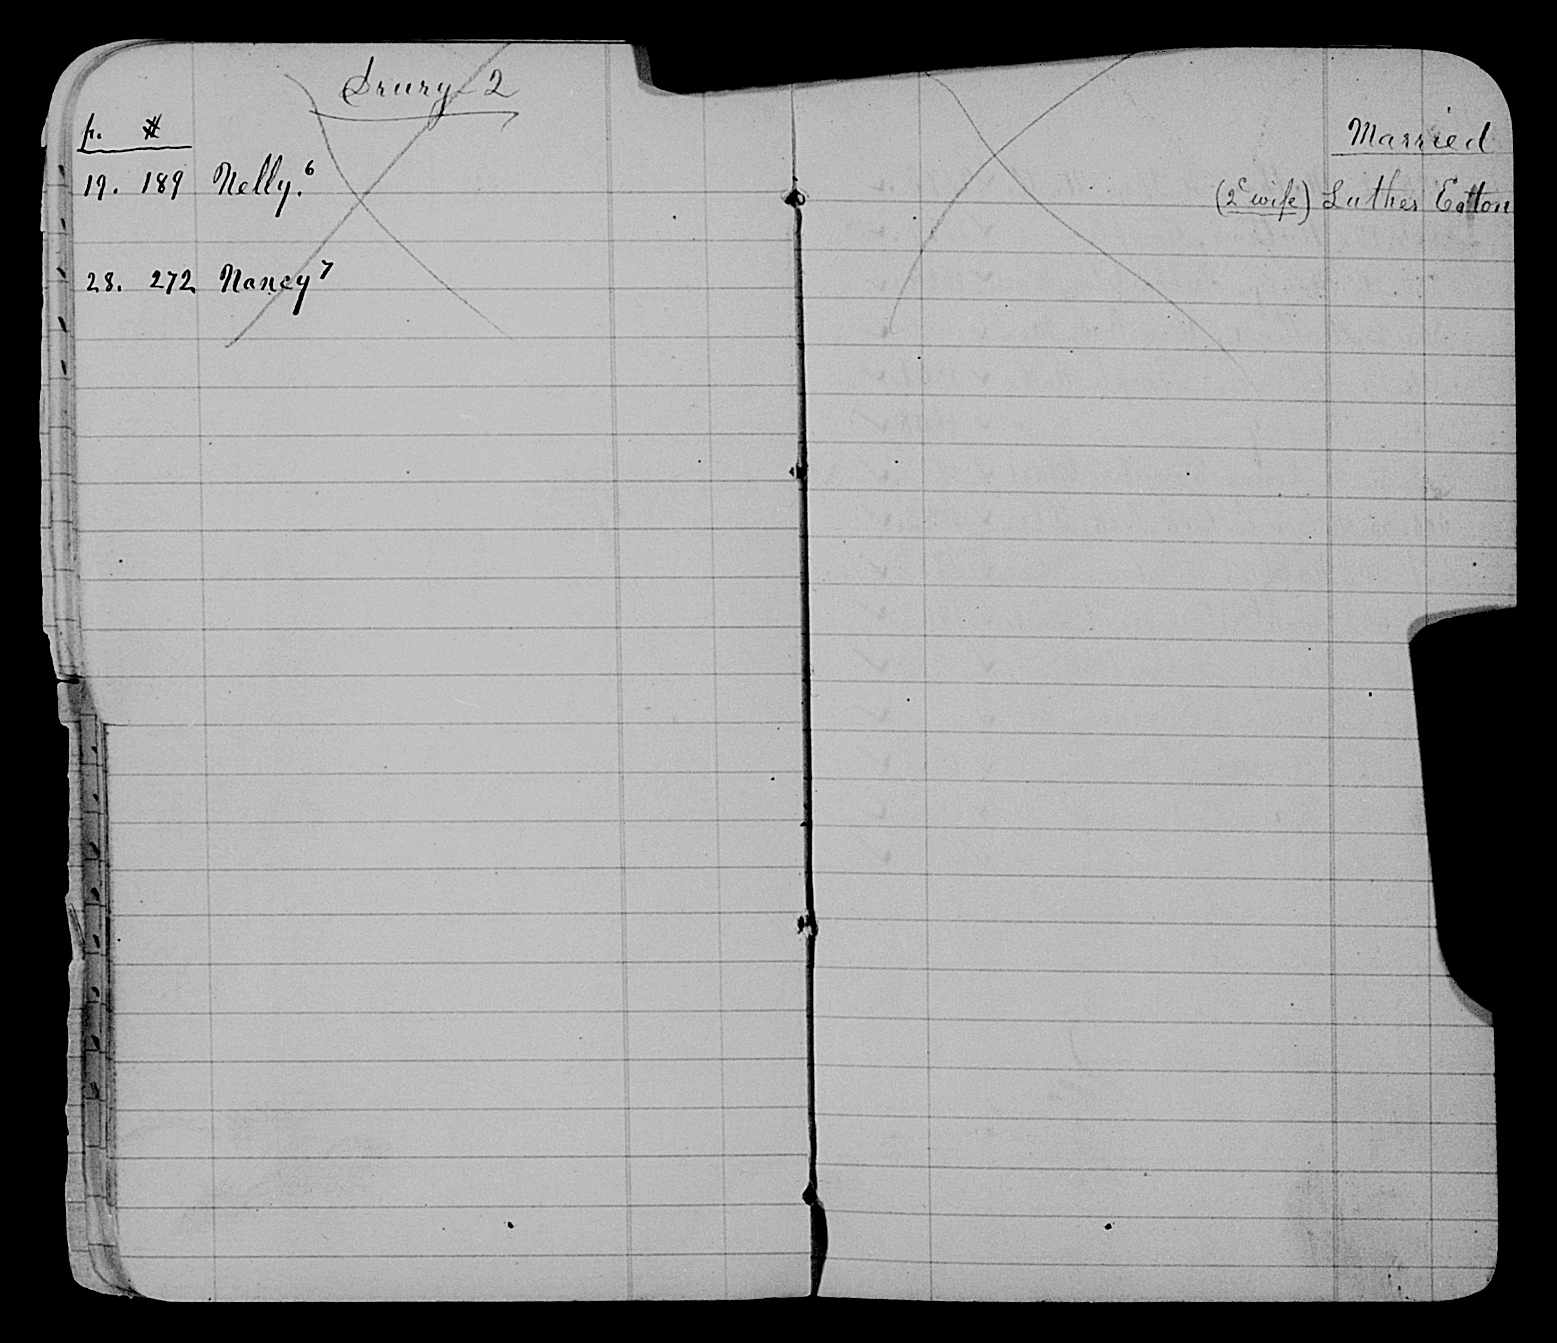 Drury 2
p. #
19. 189 Nelly.⁶
28. 272 Nancy⁷
Married
(2ᵈ wife) Luther Eatton